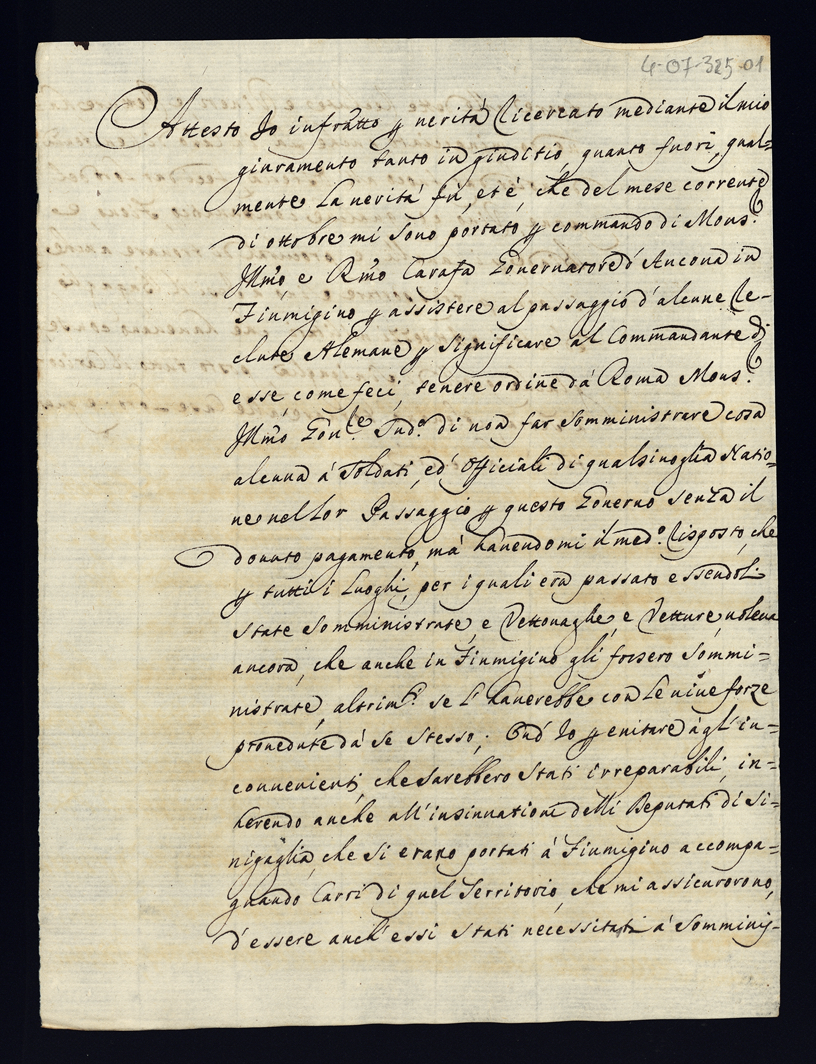 4-07-325-01
Attesto Io infratto p verità ricercato mediante il mio
giuramento tanto in giuditio, quanto fuori, qual=
mente la verità fù, et è, che del mese corrente
di ottobre mi sono portato p commando di Mons.r
Illmo e Rmo Carafa Governatore d'Ancona in
Fiumigino p assistere al passaggio d'alcune re-
clute Alemane p significare al Commandante di
esse, come feci, tenere ordine dà Roma Mons.r
Illmo Gon.le Sud.o di non far somministrare cosa
alcuna à soldati, ed' Officiali di qualsivoglia Natio=
ne nel lor Passaggio p questo Governo senza il
dovuto pagamento, mà havendomi il med.o risposto, che
p tutti i Luoghi, per i quali era passato essendoli
state somministrate, e Vettovaglie, e Vetture, voleva
ancora, che anche in Fiumigino gli fossero sommi=
nistrate, altrim.ti se l'haverebbe con le vive forze
provedute dà se stesso; Ond' Io p evitare àgl'in=
convenienti, che sarebbero stati irreparabili, in=
herendo anche all'insinuatione delli Deputati di Si=
nigaglia, che si erano portati à Fiumigino accompa=
gnando Carri di quel Territorio, che mi assicurorono,
d'essere anch'essi stati necessitati à somminis-